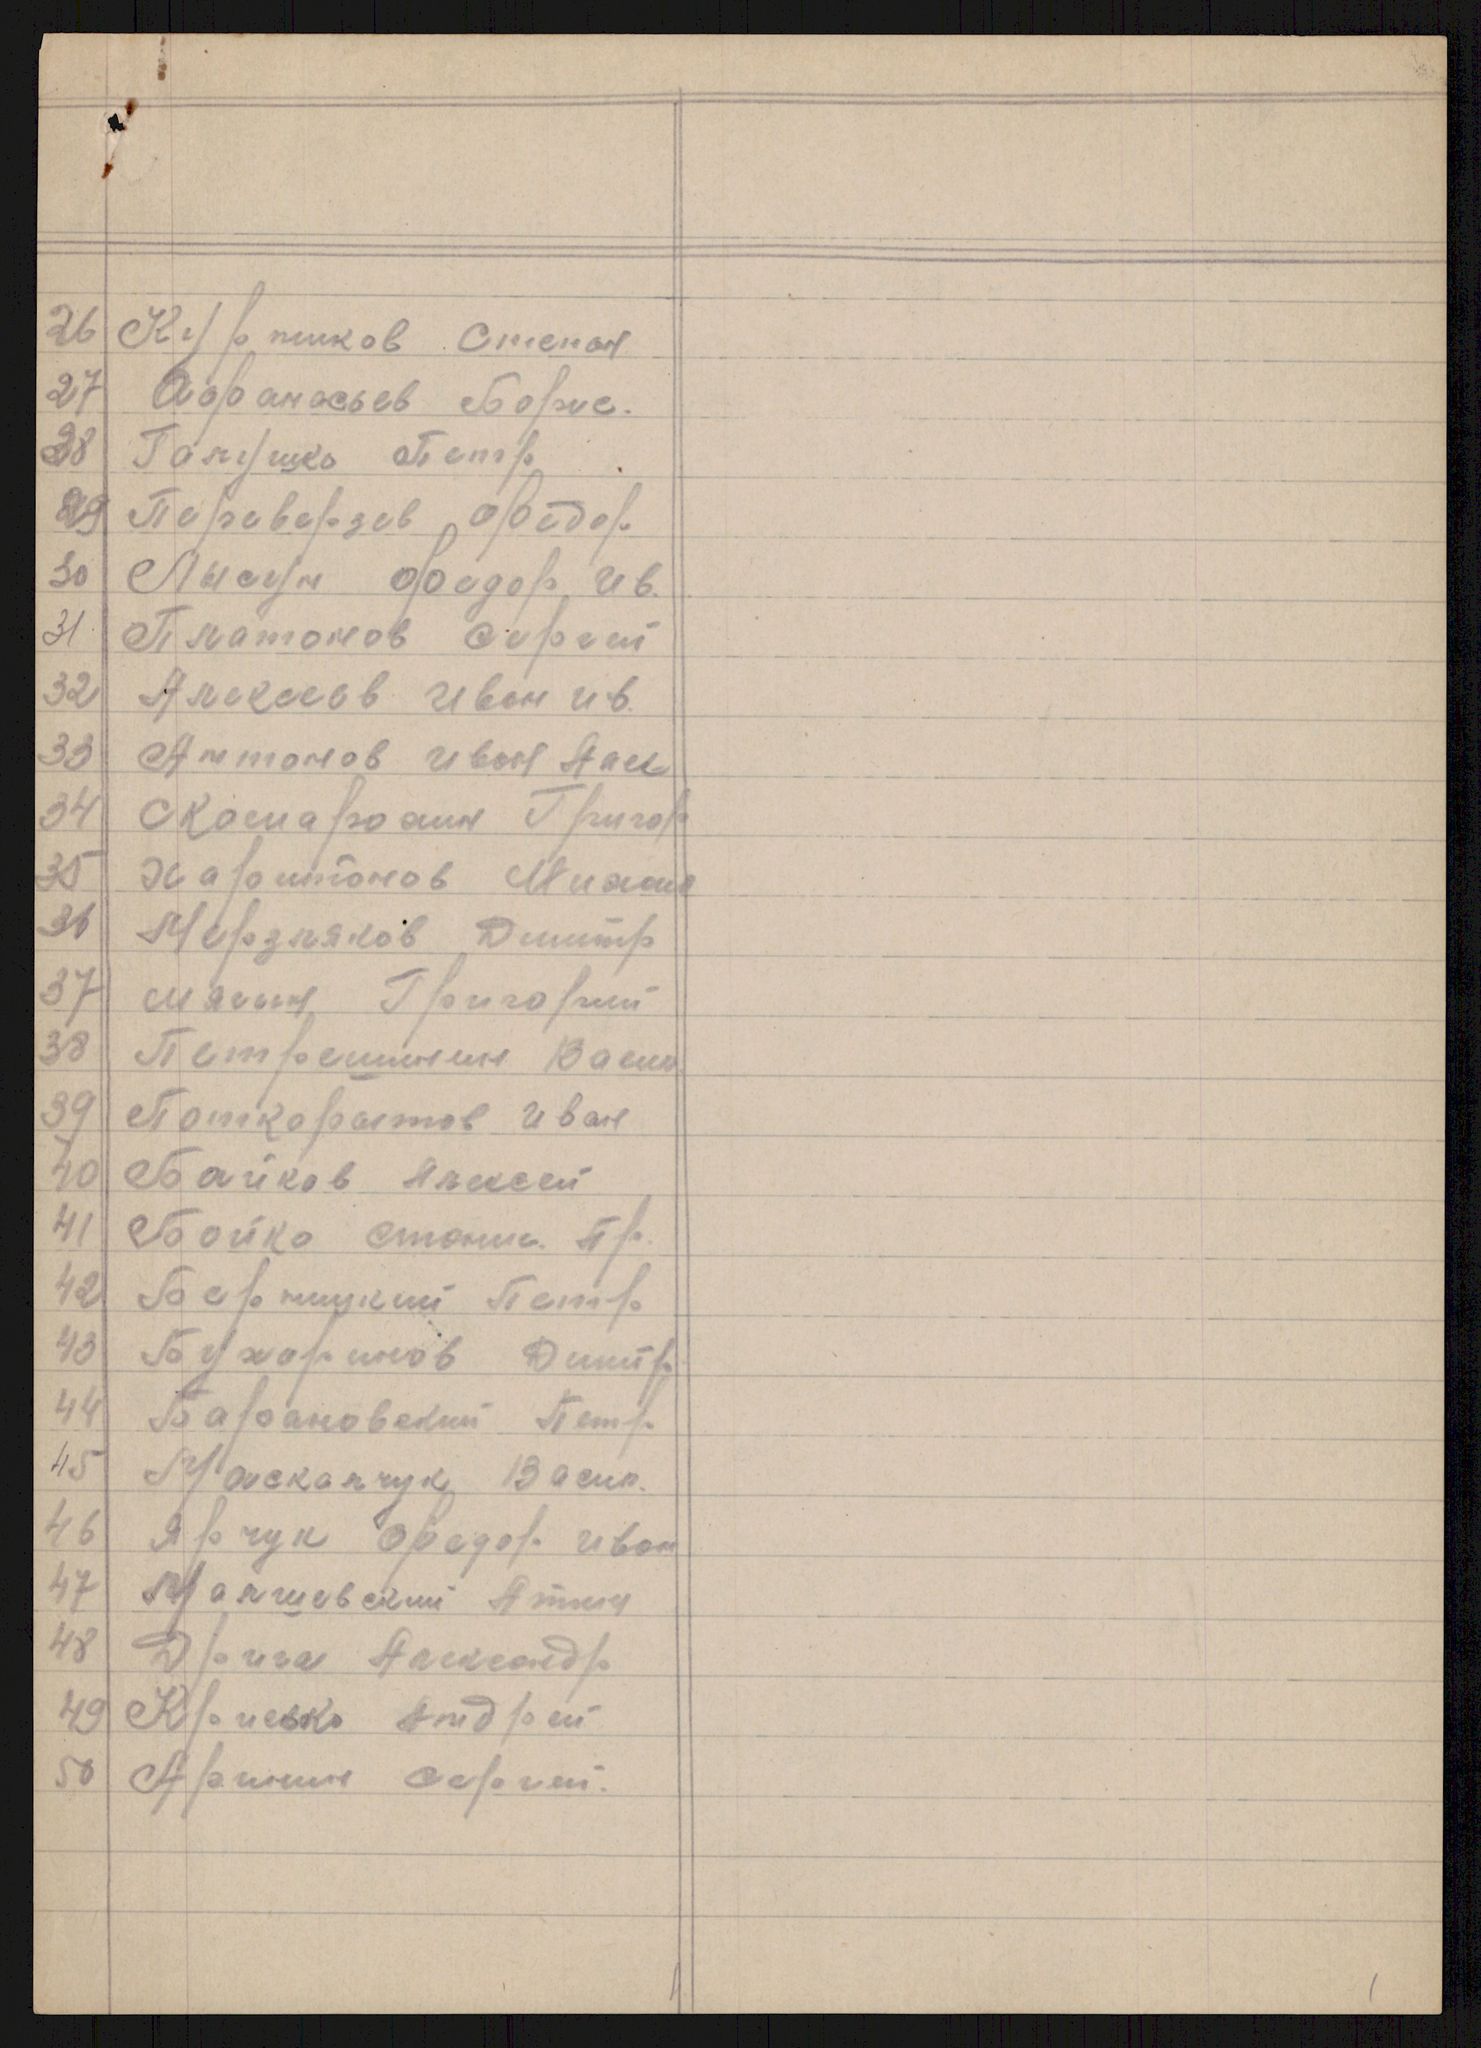 26 Курпиков Степан
27 Афанасьев Борис.
28 Галушко Петр
29 Переверзев Федор
30 Лысун Федор Ив.
31 Платонов Сергей
32 Алексеев Иван Ив.
33 Антонов Иван Алек
34 Григор
35 Харитонов Михаил
36 Мерзляков Дмитр
37 Григорий
38 Петрешинин Васил
39 Иван
40 Байков Алексей
41 Бойко Станис. Пр.
42 Берницкий Петр
43 Бухаринов Дмитр
44 Барановский Петр
45 Москалчук Васил.
46 Ярчук Федор Иван
47 Малчевский Антин
48 Дрига Александр
49 Андрей
50 Аринин Сергей.